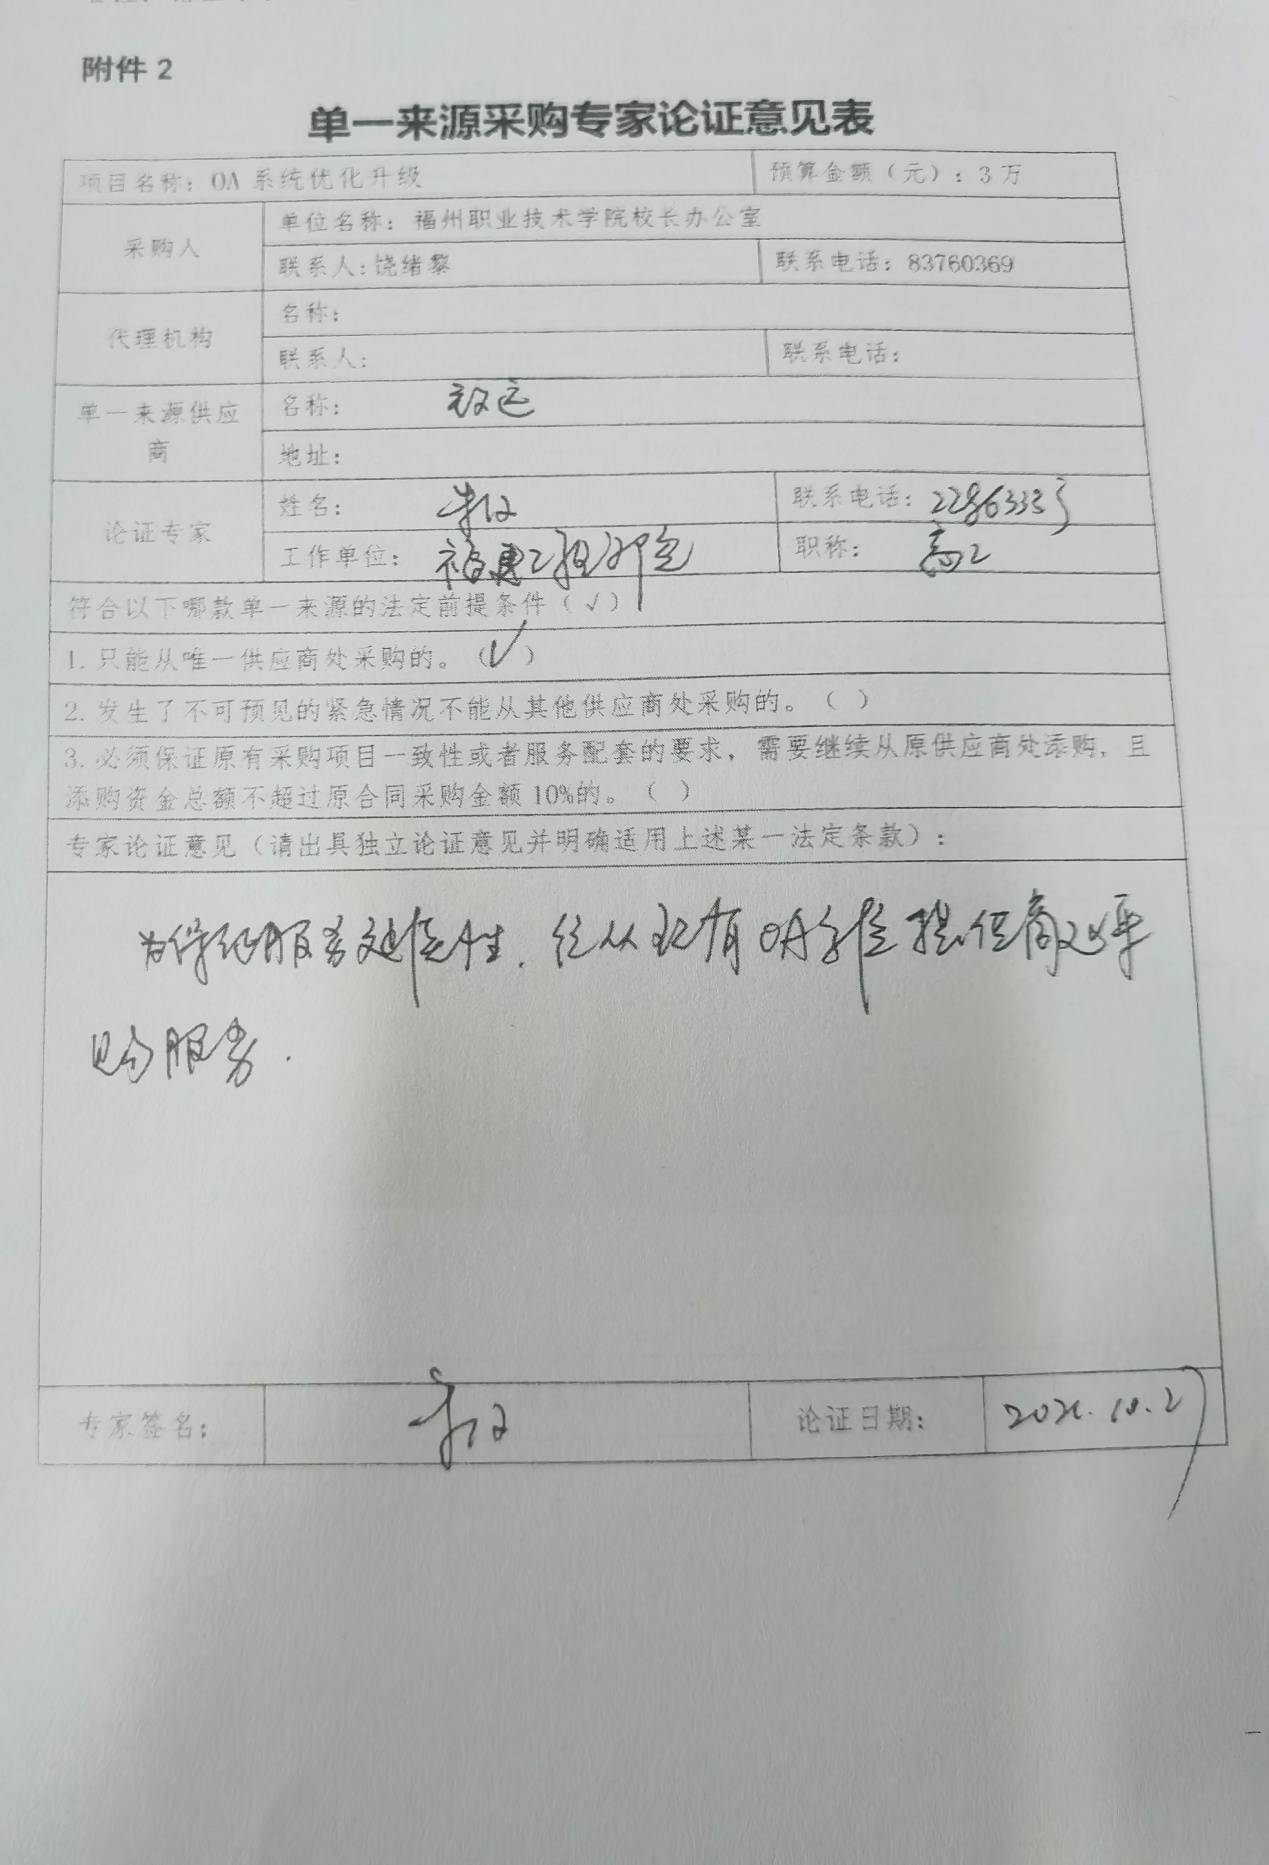 附件 2
单一来源采购专家论证意见表
项目名称：OA 系统优化升级
预算金额（元）：3 万
采购人
单位名称：福州职业技术学院校长办公室
联系人：饶绪黎
联系电话：83760369
代理机构
名称：
联系人：
联系电话：
单一来源供应商
名称：致远
地址：
论证专家
姓名：
联系电话：
工作单位：福建工程
职称：高工
符合以下哪款单一来源的法定前提条件（√）
1. 只能从唯一供应商处采购的。（√）
2. 发生了不可预见的紧急情况不能从其他供应商处采购的。（ ）
3. 必须保证原有采购项目一致性或者服务配套的要求，需要继续从原供应商处添购，且
添购资金总额不超过原合同采购金额 10%的。（ ）
专家论证意见（请出具独立论证意见并明确适用上述某一法定条款）：
为保证服务延续性，从现有OA系统提供商采
购服务.
专家签名：
论证日期：2021.10.27